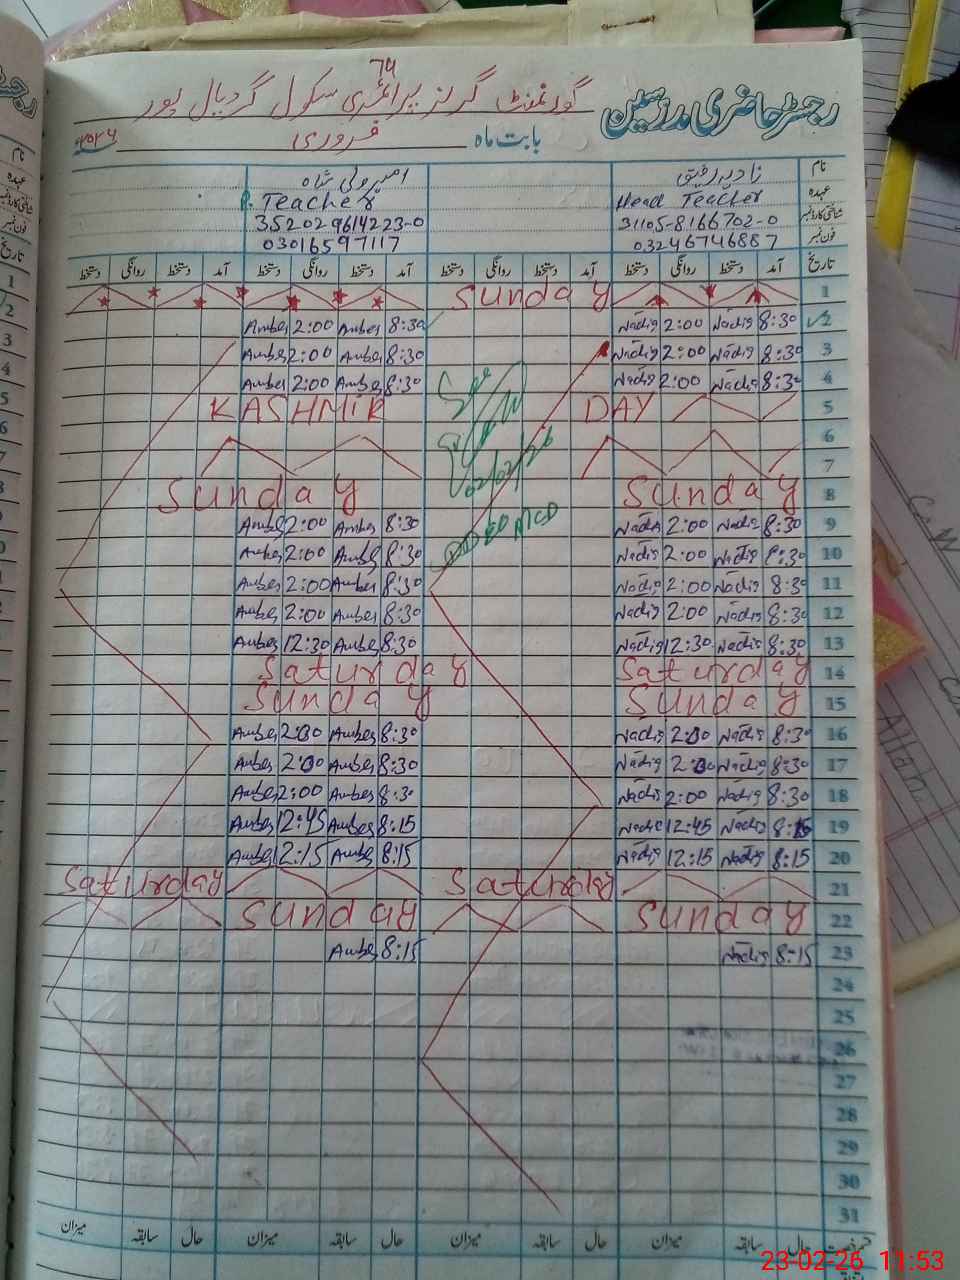 74
رجسٹر حاضری مدرسین گورنمنٹ گرلز پرائمری سکول گردیال پور
بابت ماہ فروری ۲۰۲۶
نام نادیہ رفیق
عہدہ Head Teacher P. Teacher
شناختی کارڈ نمبر 31105-8166702-0 352029614223-0
فون نمبر 03246746887 03016597117
تاریخ آمد دستخط روانگی دستخط آمد دستخط روانگی دستخط آمد دستخط روانگی دستخط آمد دستخط روانگی دستخط
1 Sunday
2 8:30 Nadia 2:00 Nadia 8:30 Amber 2:00 Amber
3 8:30 Nadia 2:00 Nadia 8:30 Amber 2:00 Amber
4 8:30 Nadia 2:00 Nadia 8:30 Amber 2:00 Amber
See
5 KASHMIR DAY
6
02/02/26
7
8 Sunday Sunday
9 8:30 Nadia 2:00 Nadia 8:30 Amber 2:00 Amber
10 8:30 Nadia 2:00 Nadia 8:30 Amber 2:00 Amber
11 8:30 Nadia 2:00 Nadia 8:30 Amber 2:00 Amber
12 8:30 Nadia 2:00 Nadia 8:30 Amber 2:00 Amber
13 8:30 Nadia 12:30 Nadia 8:30 Amber 12:30 Amber
14 Saturday Saturday
15 Sunday Sunday
16 8:30 Nadia 2:00 Nadia 8:30 Amber 2:00 Amber
17 8:30 Nadia 2:00 Nadia 8:30 Amber 2:00 Amber
18 8:30 Nadia 2:00 Nadia 8:30 Amber 2:00 Amber
19 8:15 Nadia 12:45 Nadia 8:15 Amber 12:45 Amber
20 8:15 Nadia 12:15 Nadia 8:15 Amber 12:15 Amber
21 Saturday Saturday
22 Sunday Sunday
23 8:15 Nadia 8:15 Amber
24
25
26
27
28
29
30
31
حال سابقہ میزان حال سابقہ میزان حال سابقہ میزان حال سابقہ میزان
23-02-26 11:53